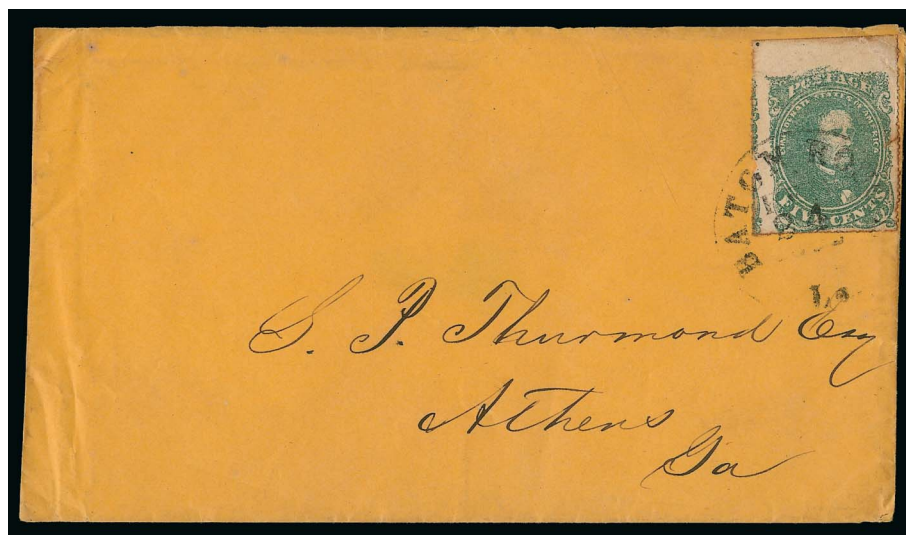 POSTAGE
FIVE CENTS
BATON
La
S. P. Thurmond Esq
Athens
Ga